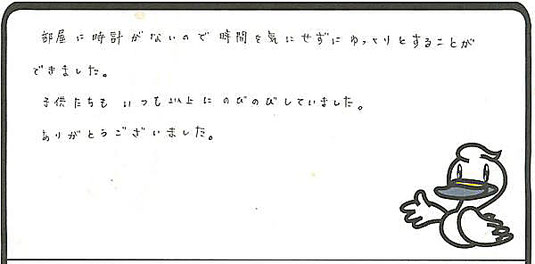 部屋に時計がないので時間を気にせずにゆっくりとすることが
できました。
子供たちも いつも以上にのびのびしていました。
ありがとうございました。